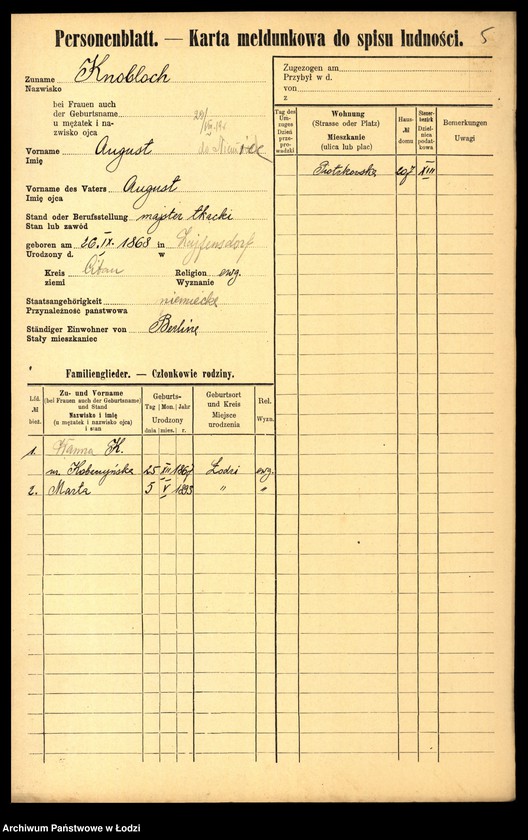 Personenblatt. — Karta meldunkowa do spisu ludności.
5
Zuname Knobloch
Nazwisko
bei Frauen auch
der Geburtsname
u mężatek i na-
zwisko ojca
29/
VII.19
do Niemiec
Vorname August
Imię
Vorname des Vaters August
Imię ojca
Stand oder Berufsstellung majster tkacki
Stan lub zawód
geboren am 20.IX.1868 in
Urodzony d. w
Kreis
ziemi
Religion ewg.
Wyznanie
Staatsangehörigkeit niemiecka
Przynależność państwowa
Ständiger Einwohner von Berlina
Stały mieszkaniec
Familienglieder. — Członkowie rodziny.
Lfd. № bież.
Zu- und Vorname
(bei Frauen auch der Geburtsname)
und Stand
Nazwisko i imię
(u mężatek i nazwisko ojca)
i stan
Geburts-
Tag Mon. Jahr
Urodzony
dnia mies. r.
Geburtsort
und Kreis
Miejsce
urodzenia
Rel.
Wyzn.
1. Wanna K.
m. 25 XII 1867 Łodzi ewg.
2. Marta 5 V 1895 " "
Zugezogen am
Przybył w d.
von
z
Tag des Um-
zuges
Dzień
prze-
prowadzki
Wohnung
(Strasse oder Platz)
Mieszkanie
(ulica lub plac)
Haus-
№
domu
Steuer-
bezirk
Dziel-
nica
podat-
kowa
Bemerkungen
Uwagi
Piotrkowska 207 XIII
Archiwum Państwowe w Łodzi